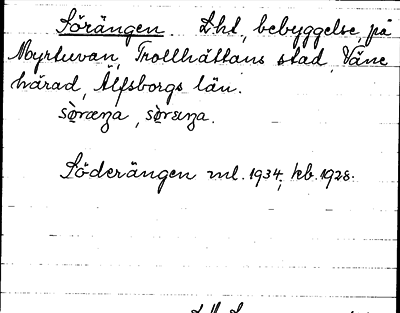 Sörängen. Lht, bebyggelse, på
Myrtuvan, Trollhättans stad, Väne
härad, Älfsborgs län.
sö̀ræŋa, sö̀rɛŋa.
Söderängen ml. 1934, kb. 1928.